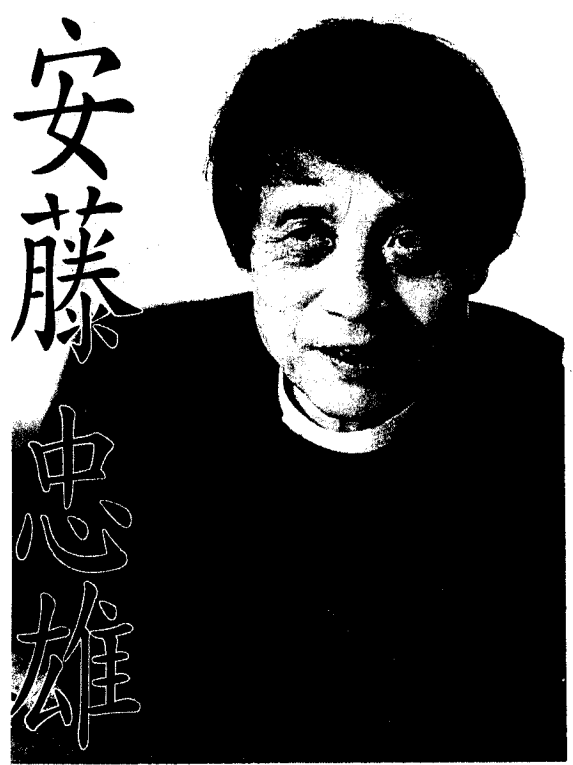 安藤忠雄